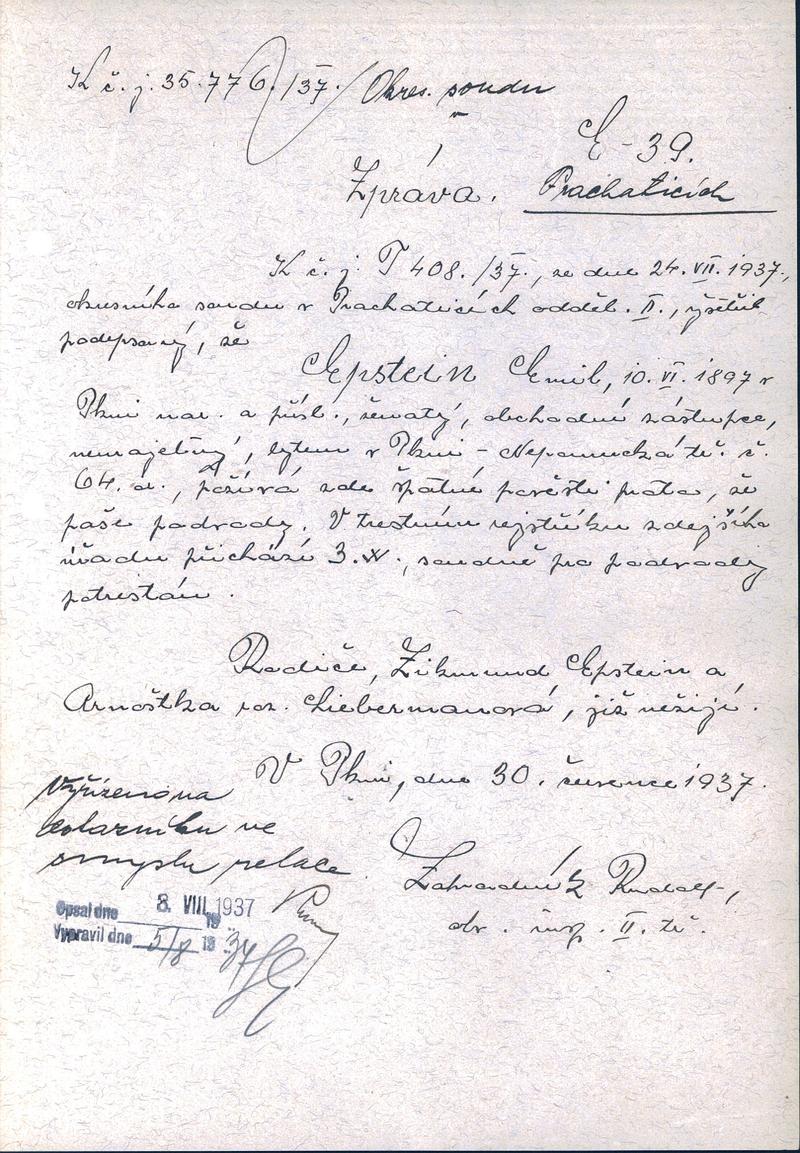 K č. j. 35.776./37. Okres. soudu
v
E-39.
Zpráva. Prachaticích
K č. j. T 408./37., ze dne 24. VII. 1937.,
okresního soudu v Prachaticích odděl. II., vyšetřil
podepsaný, že
Epstein Emil, 10. VI. 1897 v
Plzni nar. a přísl., ženatý, obchodní zástupce,
nemajetný, bytem v Plzni - Nepomucká tř. č.
64. a., požívá zde špatné pověsti proto, že
páše podvody. V trestním rejstříku zdejšího
úřadu přichází 3.x., soudně pro podvody
potrestán.
Rodiče, Zikmund Epstein a
Arnoštka roz. Liebermanová, již nežijí.
V Plzni, dne 30. července 1937.
Vyřízeno na
dotazníku ve
smyslu relace.
Zahradník Rudolf,
str. insp. II. tř.
Opsal dne 3. VIII 1937
19
Vypravil dne 5/8 19 37